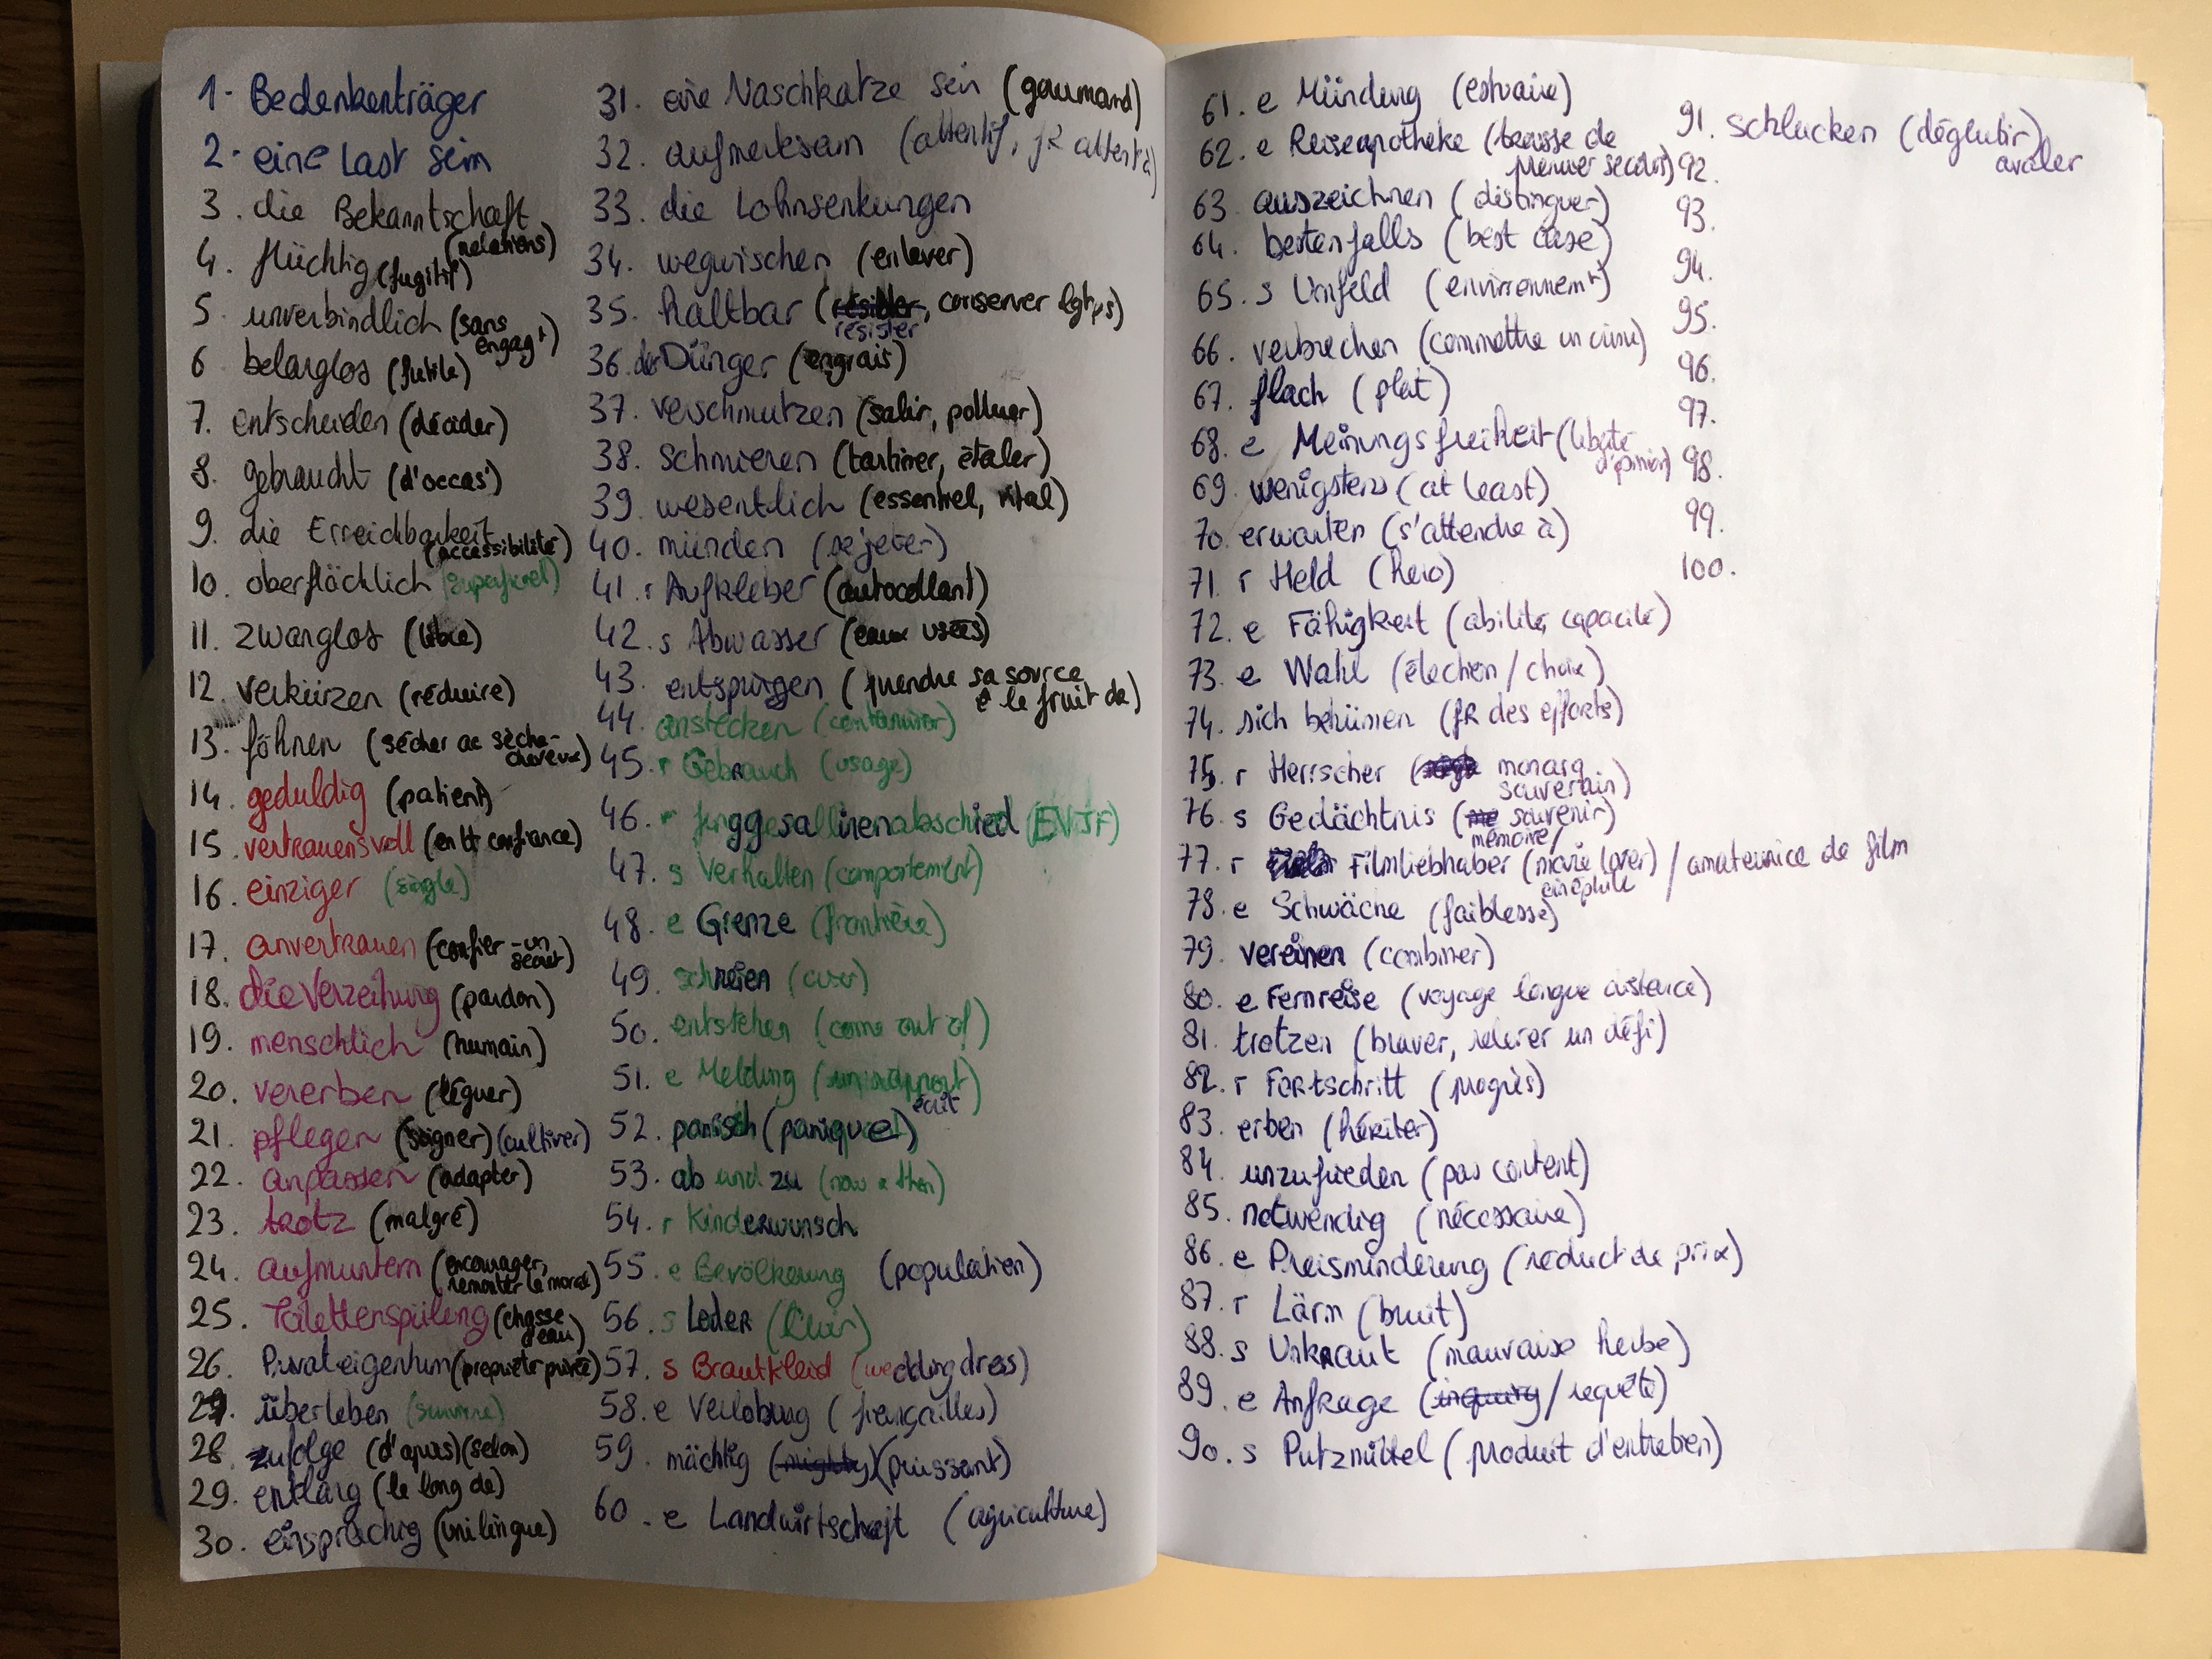 1- Bedenkenträger
2- eine Last sein
3. die Bekanntschaft
(relations)
4. flüchtig (fugitif)
5. unverbindlich (sans
engagt)
6 belanglos (futile)
7. entscheiden (décider)
8. gebraucht (d'occas')
9. die Erreichbarkeit
(accessibilité)
10. oberflächlich (superficiel)
11. zwanglos (libre)
12. verkürzen (réduire)
13. föhnen (sécher ac sèche-
cheveux)
14. geduldig (patient)
15. vertrauensvoll (en tt confiance)
16. einziger (single)
17. anvertrauen (confier -un
secret)
18. die Verzeihung (pardon)
19. menschlich (humain)
20. vererben (léguer)
21. pflegen (soigner) (cultiver)
22. anpassen (adapter)
23. trotz (malgré)
24. aufmuntern (encourager,
remonter le moral)
25. Toilettenspülung (chasse
eau)
26. Privateigentum (propriété privée)
27. überleben (survivre)
28. zufolge (d'après) (selon)
29. entlang (le long de)
30. einsprachig (unilingue)
31. eine Naschkatze sein (gourmand)
32. aufmerksam (attentif, fR attent à)
33. die Lohnsenkungen
34. wegwischen (enlever)
35. haltbar (résister, conserver lgtps)
résister
36. der Dünger (engrais)
37. verschmutzen (salir, polluer)
38. schmieren (tartiner, étaler)
39. wesentlich (essentiel, vital)
40. münden (se jeter)
41. r Aufkleber (autocollant)
42. s Abwasser (eaux usées)
43. entspringen (prendre sa source
ê le fruit de)
44. anstecken (contaminer)
45. r Gebrauch (usage)
46. r Junggesallinenabschied (EVJF)
47. s Verhalten (comportement)
48. e Grenze (frontière)
49. schreien (crier)
50. entstehen (come out of)
51. e Meldung (un rapport)
écrit
52. panisch (paniqué)
53. ab und zu (now & then)
54. r Kinderwunsch
55. e Bevölkerung (population)
56. s Leder (Cuir)
57. s Brautkleid (wedding dress)
58. e Verlobung (fiançailles)
59. mächtig (mighty) (puissant)
60. e Landwirtschaft (agriculture)
61. e Mündung (estuaire)
62. e Reiseapotheke (trousse de
premier secours)
63. auszeichnen (distinguer)
64. bestenfalls (best case)
65. s Umfeld (environnemt)
66. verbrechen (commettre un crime)
67. flach (plat)
68. e Meinungsfreiheit (liberté
d'opinion)
69. wenigstens (at least)
70. erwarten (s'attendre à)
71. r Held (hero)
72. e Fähigkeit (abilité, capacité)
73. e Wahl (élection / choix)
74. sich bemühen (fR des efforts)
75. r Herrscher (monarq
souverain)
76. s Gedächtnis (me souvenir)
mémoire/
77. r Filmliebhaber (movie lover) / amateurice de film
cinéphile
78. e Schwäche (faiblesse)
79. vereinen (combiner)
80. e Fernreise (voyage longue distance)
81. trotzen (braver, relever un défi)
82. r Fortschritt (progrès)
83. erben (hériter)
84. unzufrieden (pas content)
85. notwendig (nécessaire)
86. e Preisminderung (réduct de prix)
87. r Lärm (bruit)
88. s Unkraut (mauvaise herbe)
89. e Anfrage (inquiry / requête)
90. s Putzmittel (produit d'entretien)
91. schlucken (déglutir)
avaler
92.
93.
94.
95.
96.
97.
98.
99.
100.